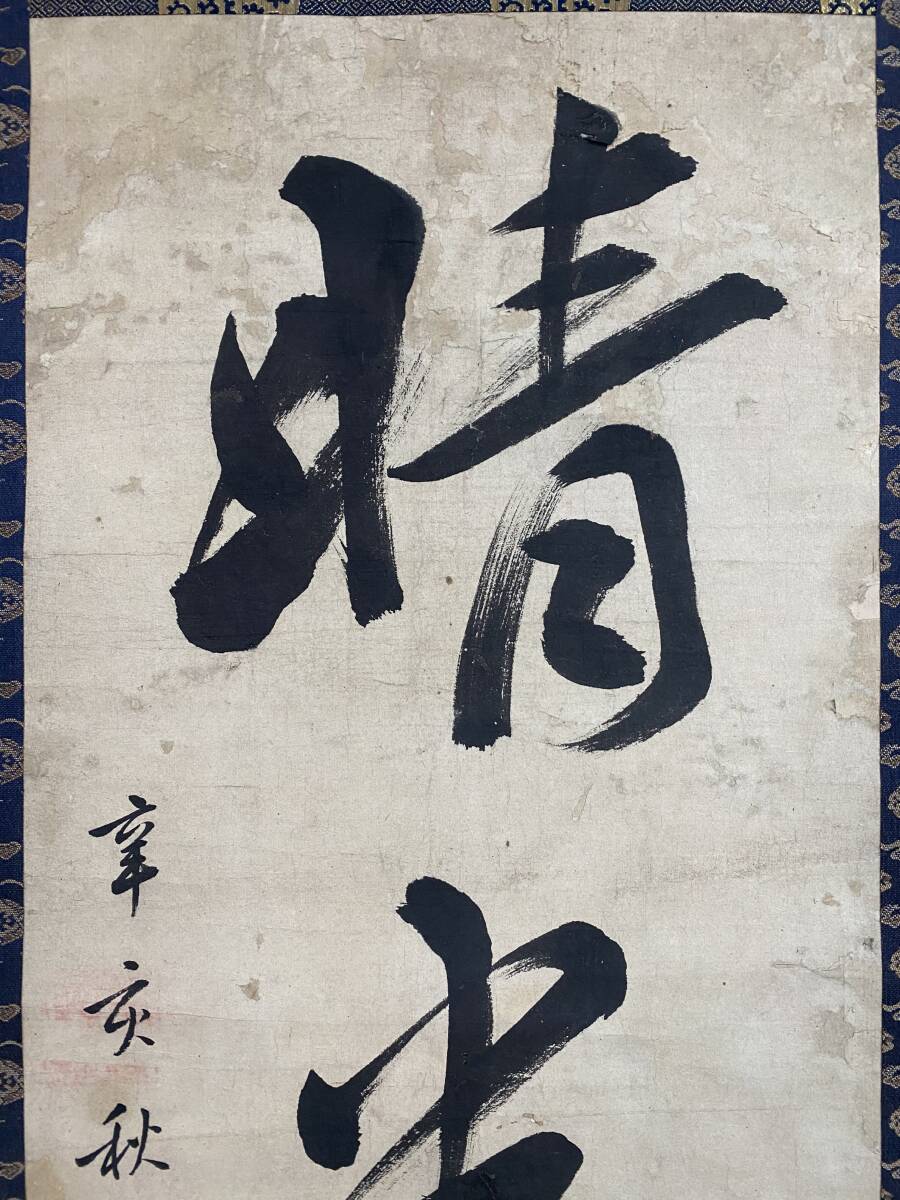 晴
辛亥秋